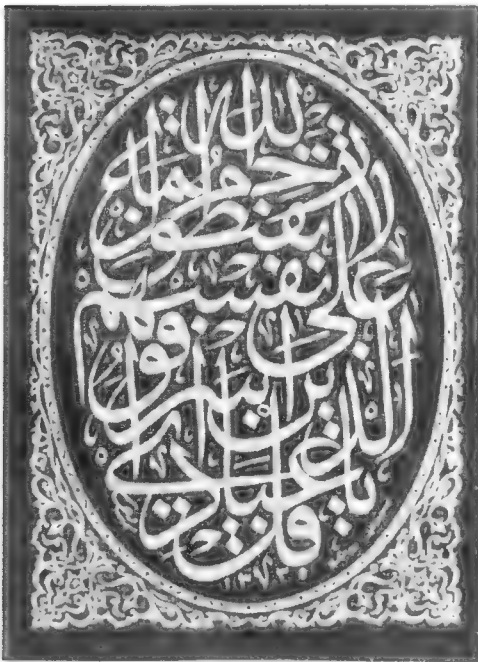 قل يا عبادي
الذين أسرفوا
على أنفسهم
لا تقنطوا
من رحمة
الله